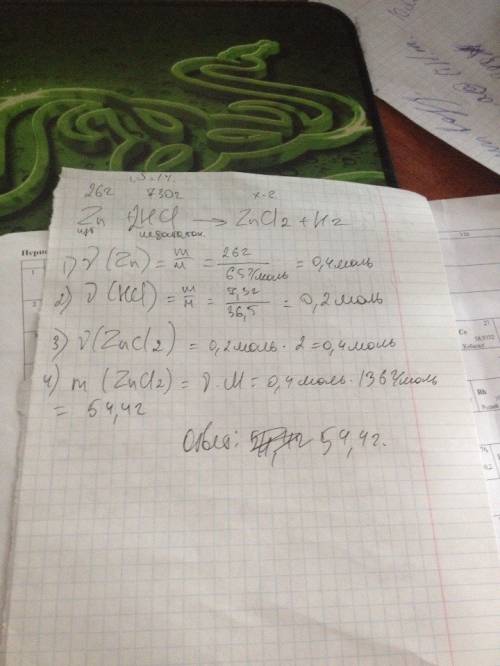 ω=1%
26г 730г x-г
Zn + 2HCl → ZnCl2 + H2
изб недостаток.
1) ν(Zn) = m/M = 26г/65г/моль = 0,4моль
2) ν(HCl) = m/M = 7,3г/36,5 = 0,2моль
3) ν(ZnCl2) = 0,2моль · 2 = 0,4моль
4) m(ZnCl2) = ν · M = 0,4моль · 136г/моль
= 54,4г
Ответ: 54,4г.
Перио